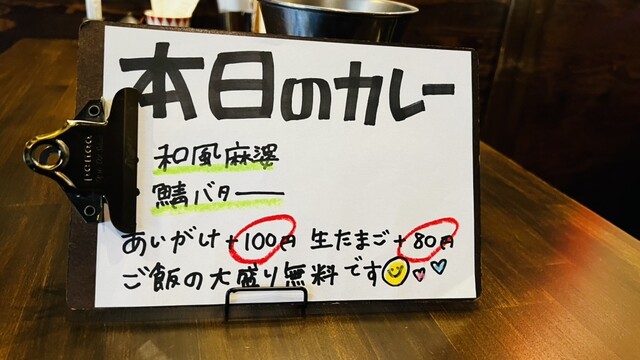 本日のカレー
和風麻婆
鯖バター
あいがけ+100円 生たまご+80円
ご飯の大盛り無料です
penco